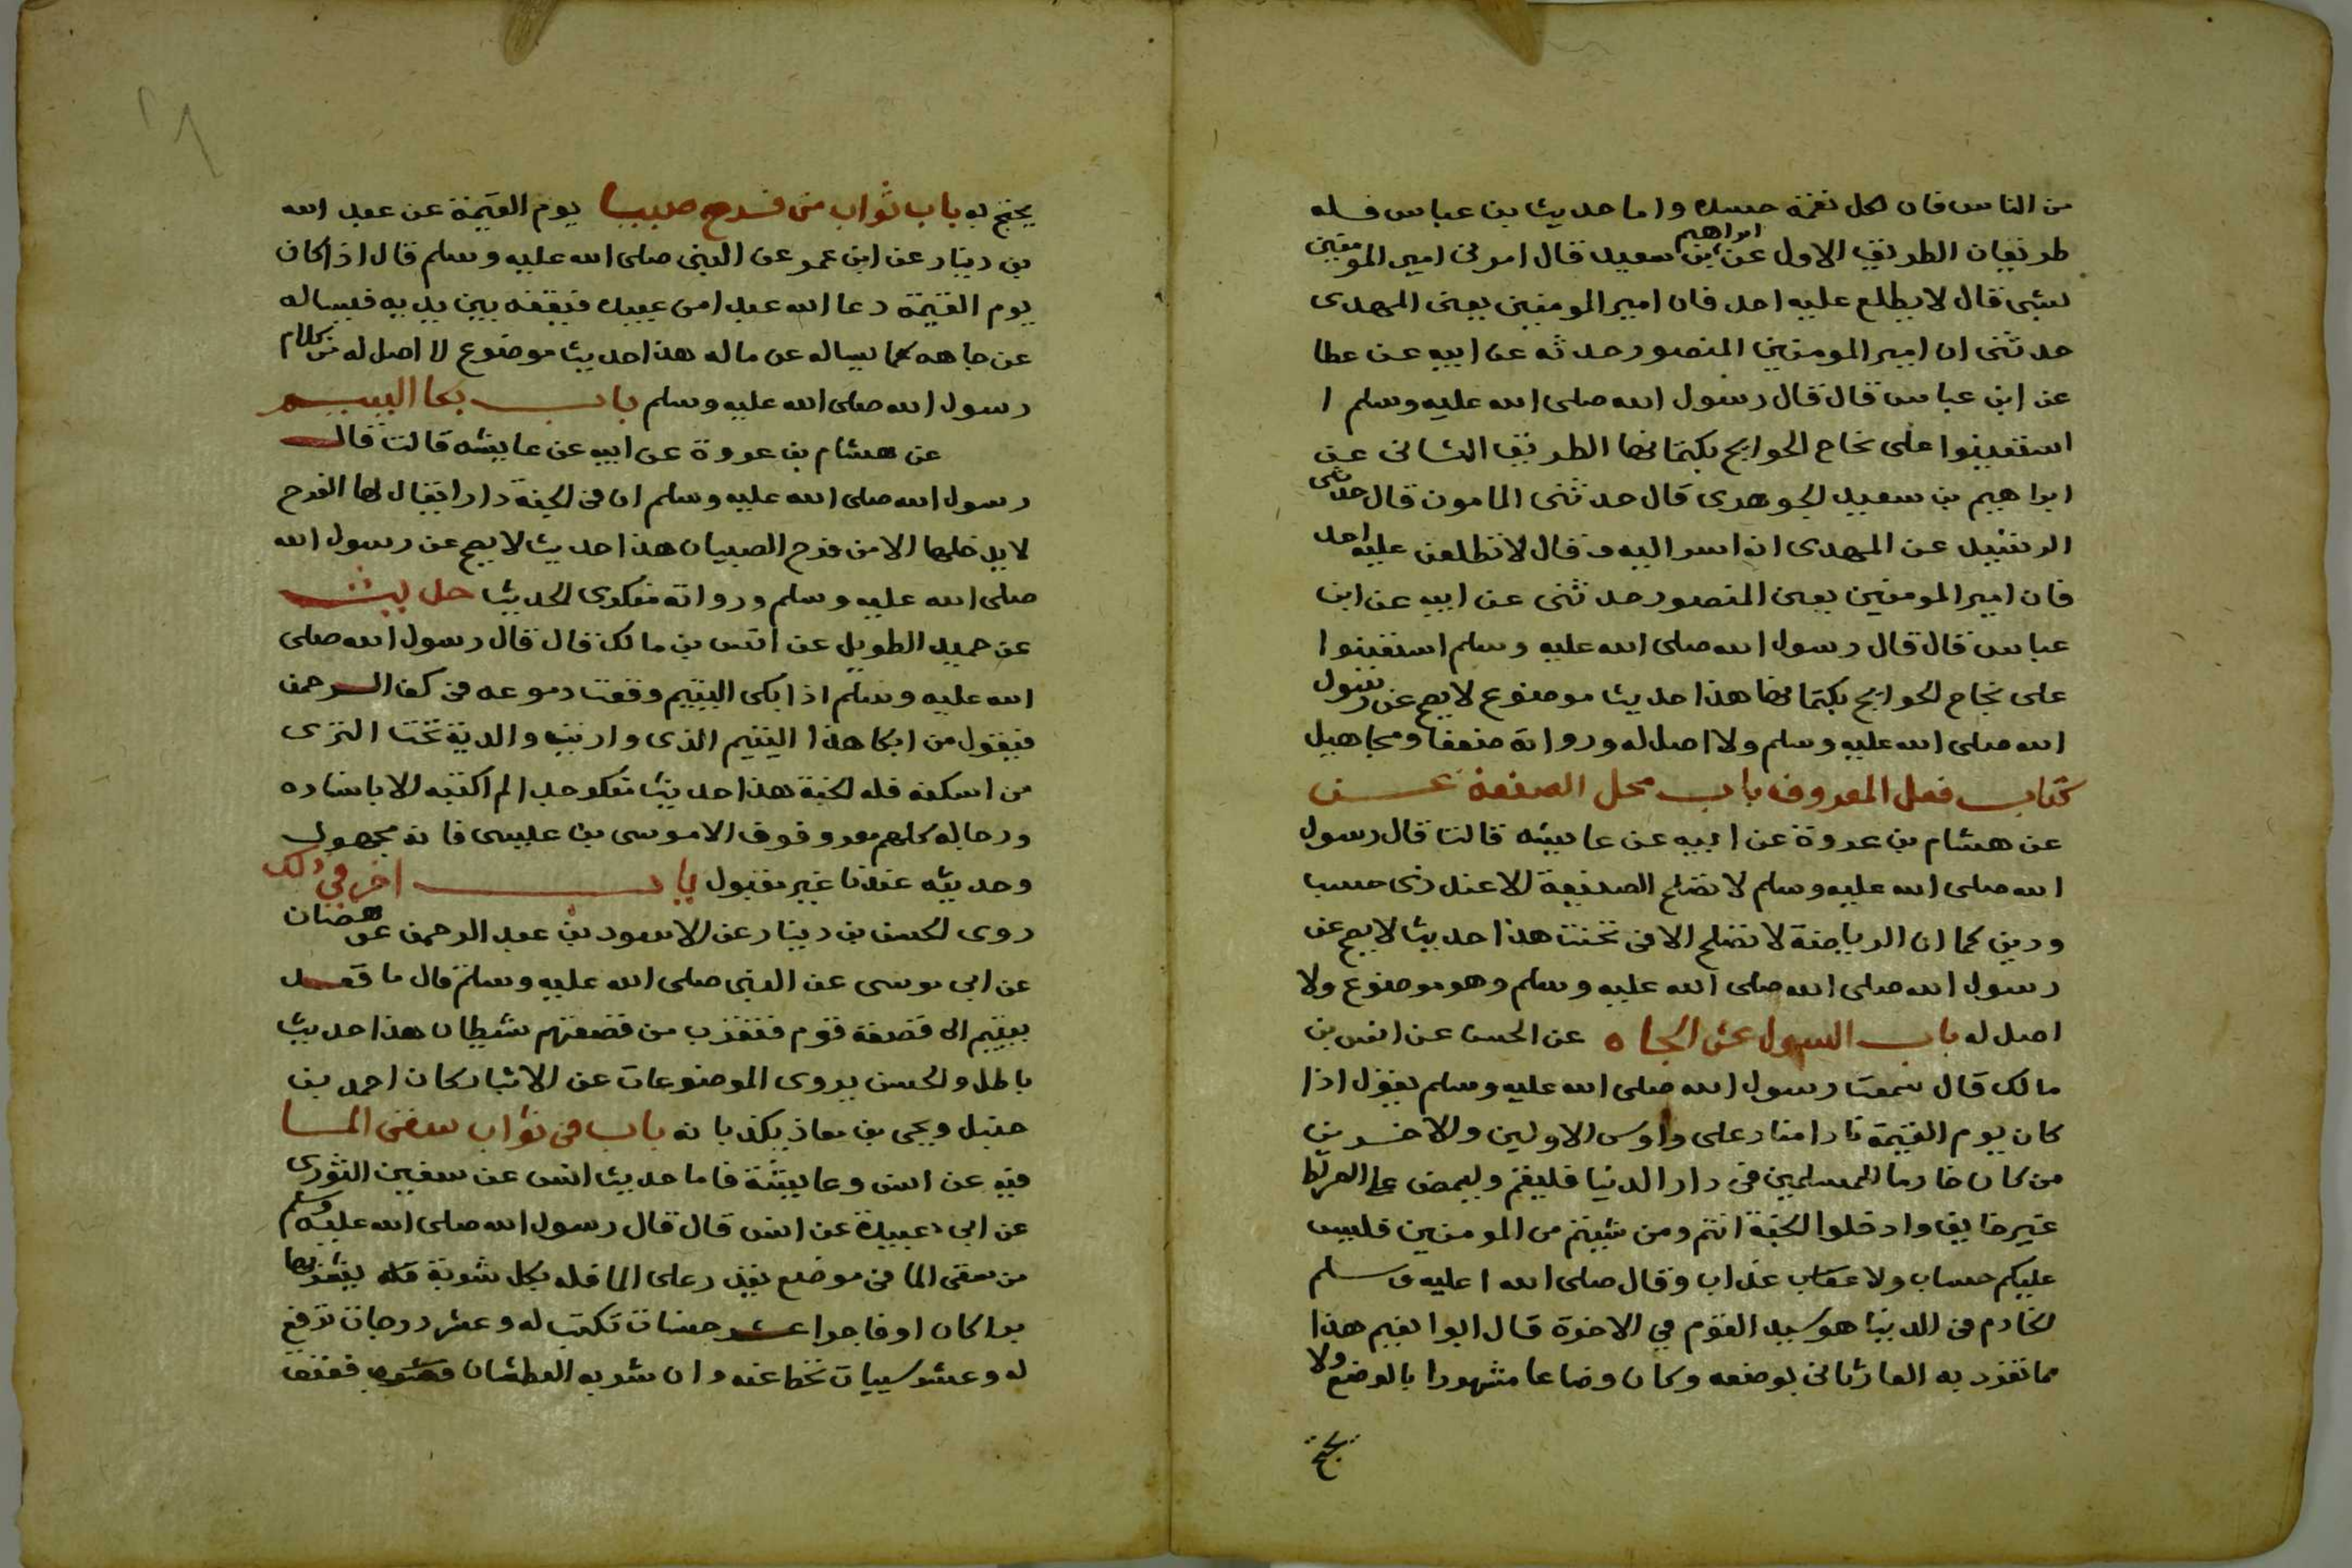 من الناس فان لكل نعمة حسده واما حديث بن عباس فله
طريقان الطريق الاول عن ابراهيم بن سعيد قال امرني امير المومنين
بشي قال لا يطلع عليه احد فان امير المومنين يعني المهدى
حدثنى ان امير المومنين المنصور حدثه عن ابيه عن عطا
عن ابن عباس قال قال رسول الله صلى الله عليه وسلم ا
استعينوا على نجاح الحوايج بكتمانها الطريق الثانى عن
ابراهيم بن سعيد الجوهرى قال حدثنى المامون قال حدثنى
الرشيد عن المهدى انه اسر اليه و قال لا تطلعن عليه احد
فان امير المومنين يعنى المنصور حدثنى عن ابيه عن ابن
عباس قال قال رسول الله صلى الله عليه وسلم استعينوا
على نجاح الحوايج بكتمانها هذا حديث موضوع لا يصح عن رسول
الله صلى الله عليه وسلم ولا اصل له ورواته ضعفا ومجاهيل
كتاب فعل المعروف باب محل الصنعة عن
عن هشام بن عروة عن ابيه عن عايشه قالت قال رسول
الله صلى الله عليه وسلم لا تصلح الصنيعة الا عند ذى حسب
ودين كما ان الرياضة لا تصلح الا فى نجيب هذا حديث لا يصح عن
رسول الله صلى الله صلى الله عليه وسلم وهو موضوع ولا
اصل له باب السول عن الجاه عن الحسن عن انس بن
مالك قال سمعت رسول الله صلى الله عليه وسلم يقول اذا
كان يوم القيمة نادا مناد على رءوس الاولين والاخرين
من كان خادما للمسلمين فى دار الدنيا فليقم وليمض على الصراط
غير خايف وادخلوا الجنة انتم ومن شيتم من المومنين فليس
عليكم حساب ولا عذاب وقال صلى الله ا عليه و سلم
الخادم فى الدنيا هو سيد القوم في الاخرة قال ابوا نعيم هذا
مما تفرد به الفارنانى بوضعه وكان وضاعا مشهورا بالوضع ولا
يحتج
يحتج به باب ثواب من فرح صبيا يوم القيمة عن عبد الله
بن دينار عن ابن عمر عن النبى صلى الله عليه وسلم قال اذا كان
يوم القيمة دعا الله عبدا من عبيده فيقفه بين يديه فيساله
عن جاهه كما يساله عن ماله هذا حديث موضوع لا اصل له من كلام
رسول الله صلى الله عليه وسلم باب بكا اليتيم
عن هشام بن عروة عن ابيه عن عايشه قالت قال
رسول الله صلى الله عليه وسلم ان فى الجنة دارا يقال لها الفرح
لا يدخلها الا من فرح الصبيان هذا حديث لا يصح عن رسول الله
صلى الله عليه وسلم ورواته منكرى الحديث حديث
عن حميد الطويل عن انس بن مالك قال قال رسول الله صلى
الله عليه وسلم اذا بكى اليتيم وقعت دموعه فى كف الرحمن
فيقول من ابكا هذا اليتيم الذى واريت والديه تحت الثرى
من اسكته فله الجنة هذا حديث منكر جدا لم اكتبه الا باسناده
ورجاله كلهم معروفون الا موسى بن عيسى فانه مجهول
وحديثه عندنا غير مقبول باب اخر في ذلك
روى الحسن بن دينار عن الاسود بن عبد الرحمن عن هصان
عن ابى موسى عن النبى صلى الله عليه وسلم قال ما قعد
يتيم الى قصعة قوم فتقرب من قصعتهم شيطان هذا حديث
باطل والحسن يروى الموضوعات عن الاثبات كان احمد بن
حنبل ويحى بن معاذ يكذبانه باب فى ثواب سقى الما
فيه عن انس وعايشة فاما حديث انس عن سفين الثورى
عن ابى عبيدة عن انس قال قال رسول الله صلى الله عليه وسلم
من سقى الما فى موضع يقدر على الما فله بكل شربة يشربها
برا كان او فاجرا عشر حسنات تكتب له وعشر درجات ترفع
له وعشر سييات تحط عنه وان شربه العطشان فعتق